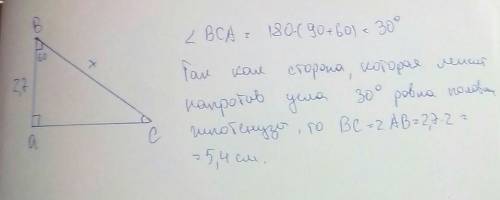 B
60
x
2,7
a
C
∠ BCA = 180-(90+60) = 30°
Так как сторона, которая лежит
напротив угла 30° равна половин
гипотенузы, то BC = 2 AB = 2,7·2 =
= 5,4 см.